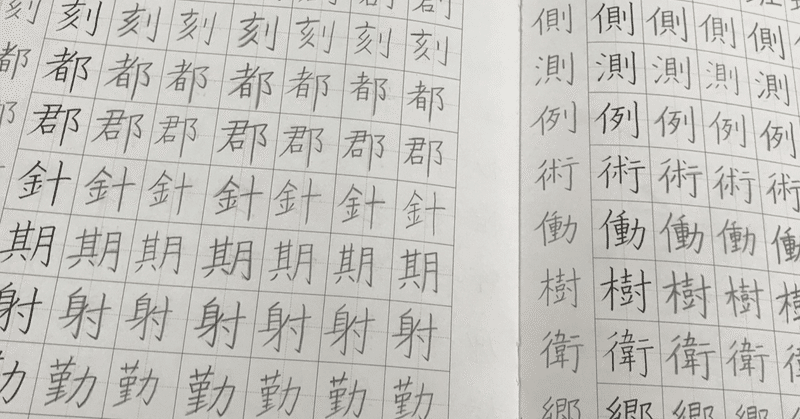 刻刻刻刻刻刻刻刻
都都都都都都都都
郡郡郡郡郡郡郡
針針針針針針針
期期期期期期期
射射射射射射射
勤勤勤勤勤勤
側側側側側
測測測測測
例例例例例
術術術術術
働働働働働
樹樹樹樹樹
衛衛衛衛衛
郷郷郷郷